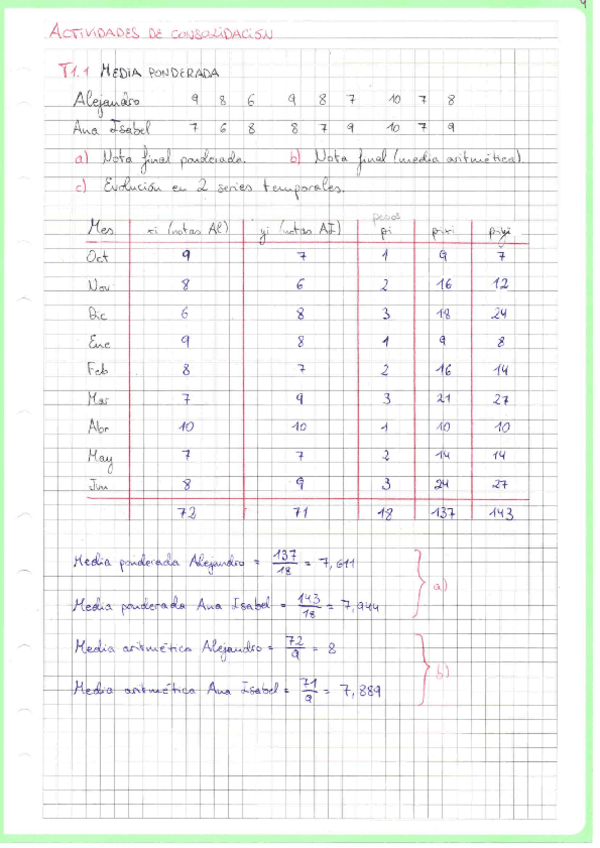 ACTIVIDADES DE CONSOLIDACIÓN
T1.1 MEDIA PONDERADA
Alejandro 9 8 6 9 8 7 10 7 8
Ana Isabel 7 6 8 8 7 9 10 7 9
a) Nota final ponderada. b) Nota final (media aritmética)
c) Evolución en 2 series temporales.
pesos
Mes xi (notas Al) yi (notas AI) pi pixi piyi
Oct 9 7 1 9 7
Nov 8 6 2 16 12
Dic 6 8 3 18 24
Ene 9 8 1 9 8
Feb 8 7 2 16 14
Mar 7 9 3 21 27
Abr 10 10 1 10 10
May 7 7 2 14 14
Jun 8 9 3 24 27
72 71 18 137 143
Media ponderada Alejandro = 137/18 = 7,611
a)
Media ponderada Ana Isabel = 143/18 = 7,944
Media aritmética Alejandro = 72/9 = 8
b)
Media aritmética Ana Isabel = 71/9 = 7,889